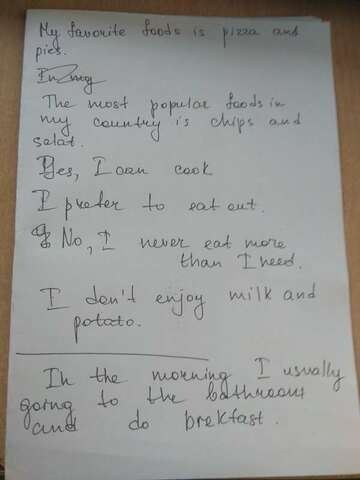 My favorite foods is pizza and
pies.
The most popular foods in
my country is chips and
salat.
Yes, I can cook
I prefer to eat out.
No, I never eat more
than I need.
I don't enjoy milk and
potato.
In the morning I usually
going to the bathroom
and do brekfast.